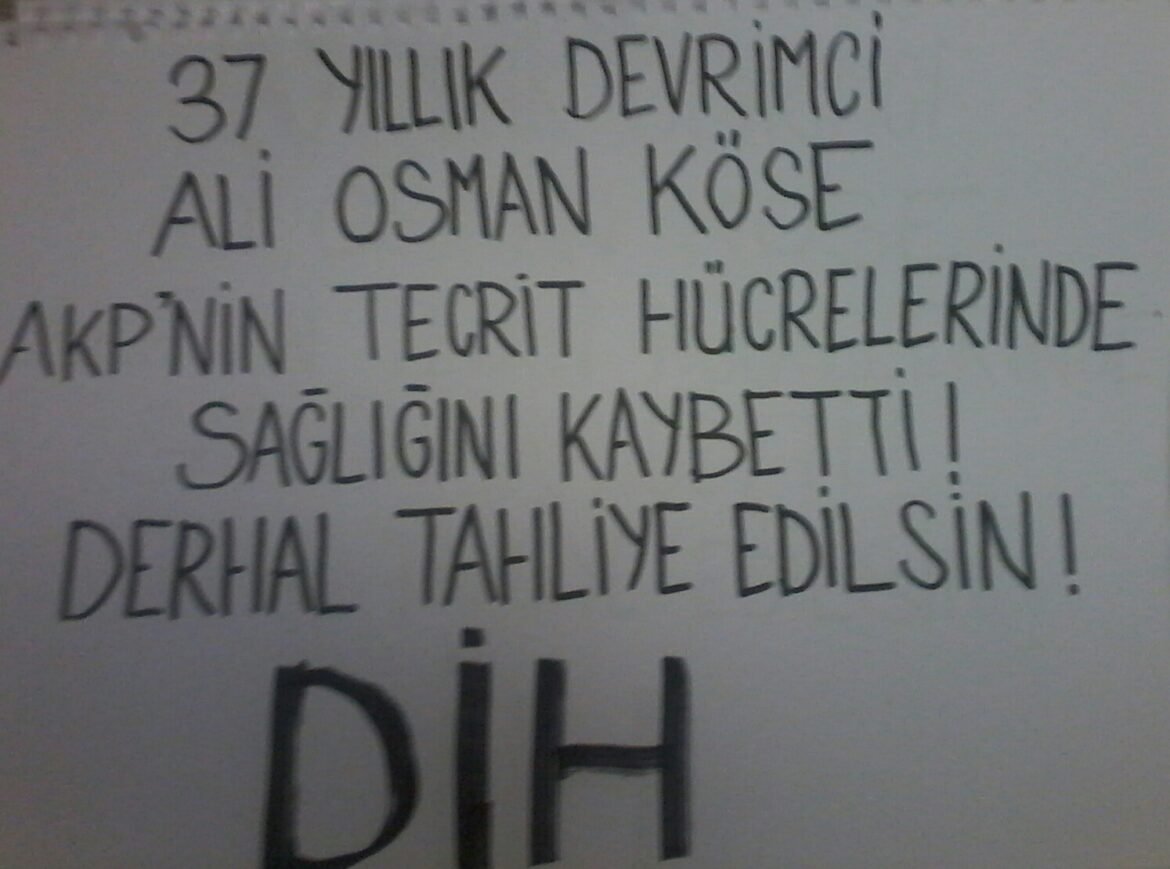 37 YILLIK DEVRİMCİ
ALİ OSMAN KÖSE
AKP'NİN TECRİT HÜCRELERİNDE
SAĞLIĞINI KAYBETTİ!
DERHAL TAHLİYE EDİLSİN!
DİH